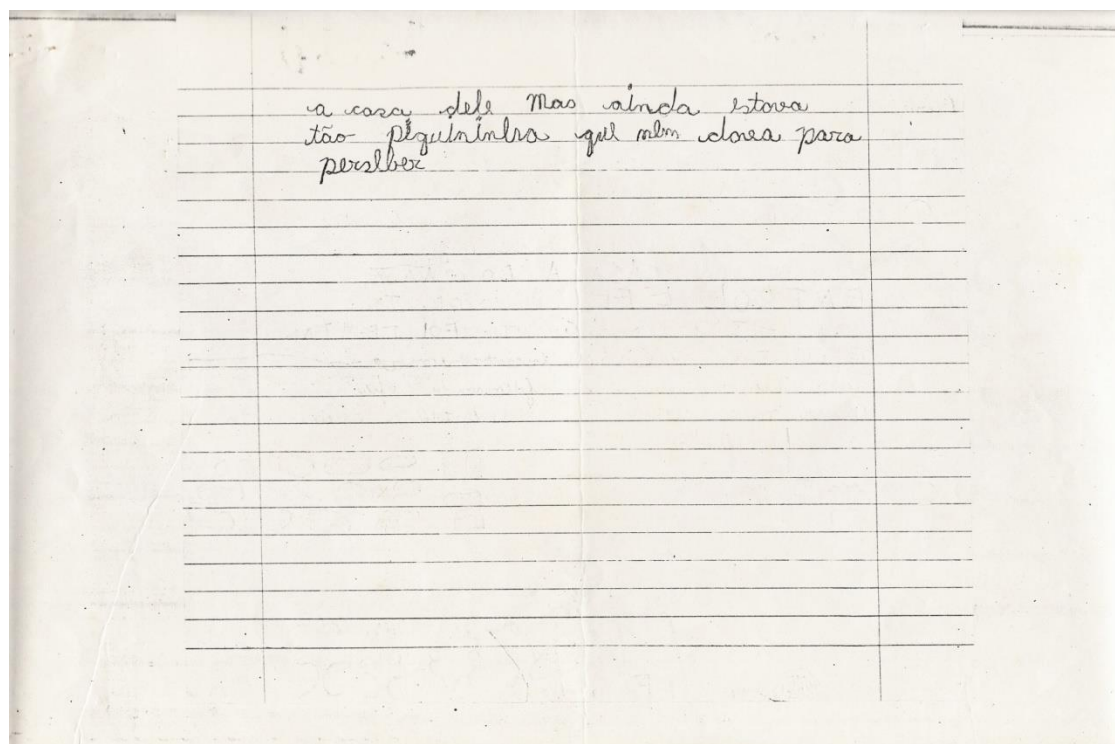 a casa dele Mas ainda estava
tão piquininha que nem dava para
perseber